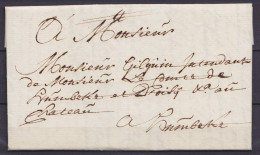 A Monsieur
Monsieur Gilquin jntendant
de Monsieur Le Prince de
Rumbeke et &a au
Chateau
A Rumbeke